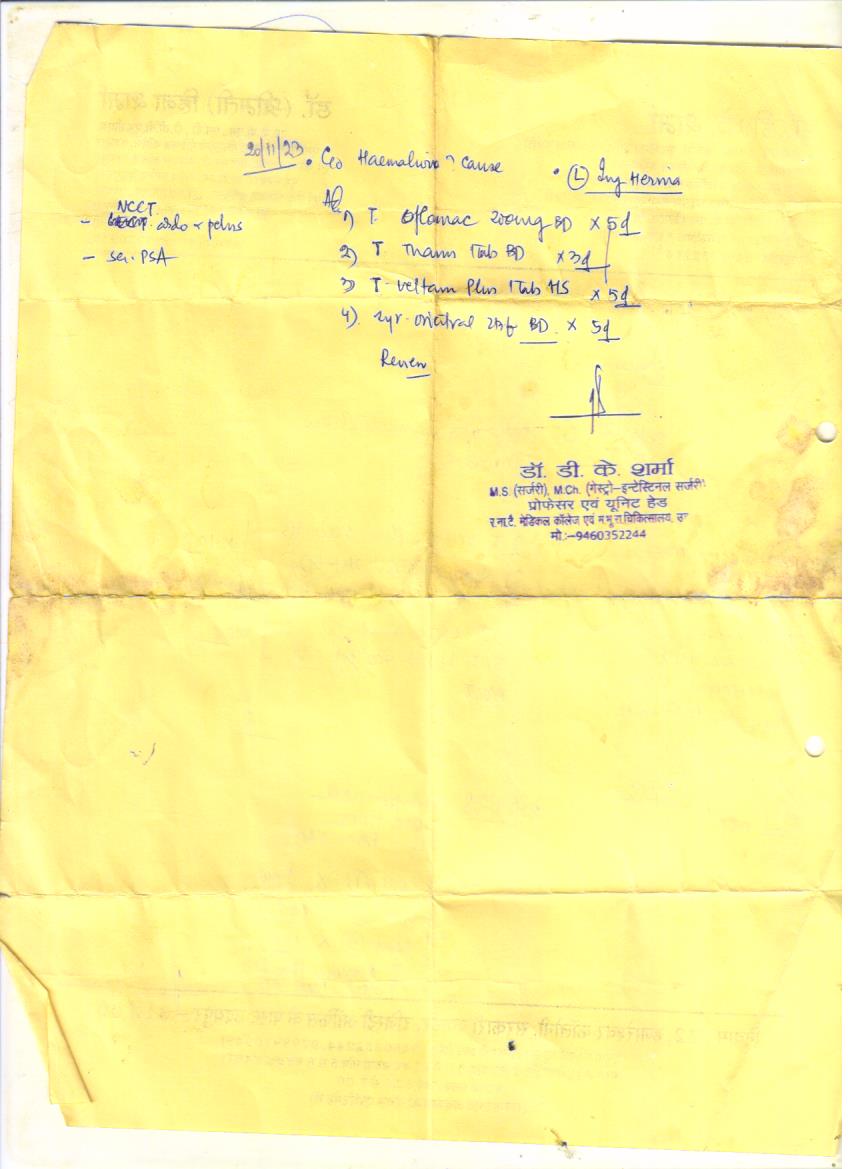 20/11/23 • C/o Haematuria ? cause • (L) Ing Hernia
Adv
NCCT
- abdo & pelvis
- ser. PSA
1) T. Oflomac 200mg BD x 5d
2) T. 1Tab BD x 3d
3) T. Veltam Plus 1Tab HS x 5d
4). Syr. 2tsf BD x 5d
Review
डॉ. डी. के. शर्मा
M.S. (सर्जरी), M.Ch. (गेस्ट्रो-इन्टेस्टिनल सर्जरी)
प्रोफेसर एवं यूनिट हेड
र.ना.टै. मेडिकल कॉलेज एवं म.भू.रा.चिकित्सालय, उ
मो.:-9460352244